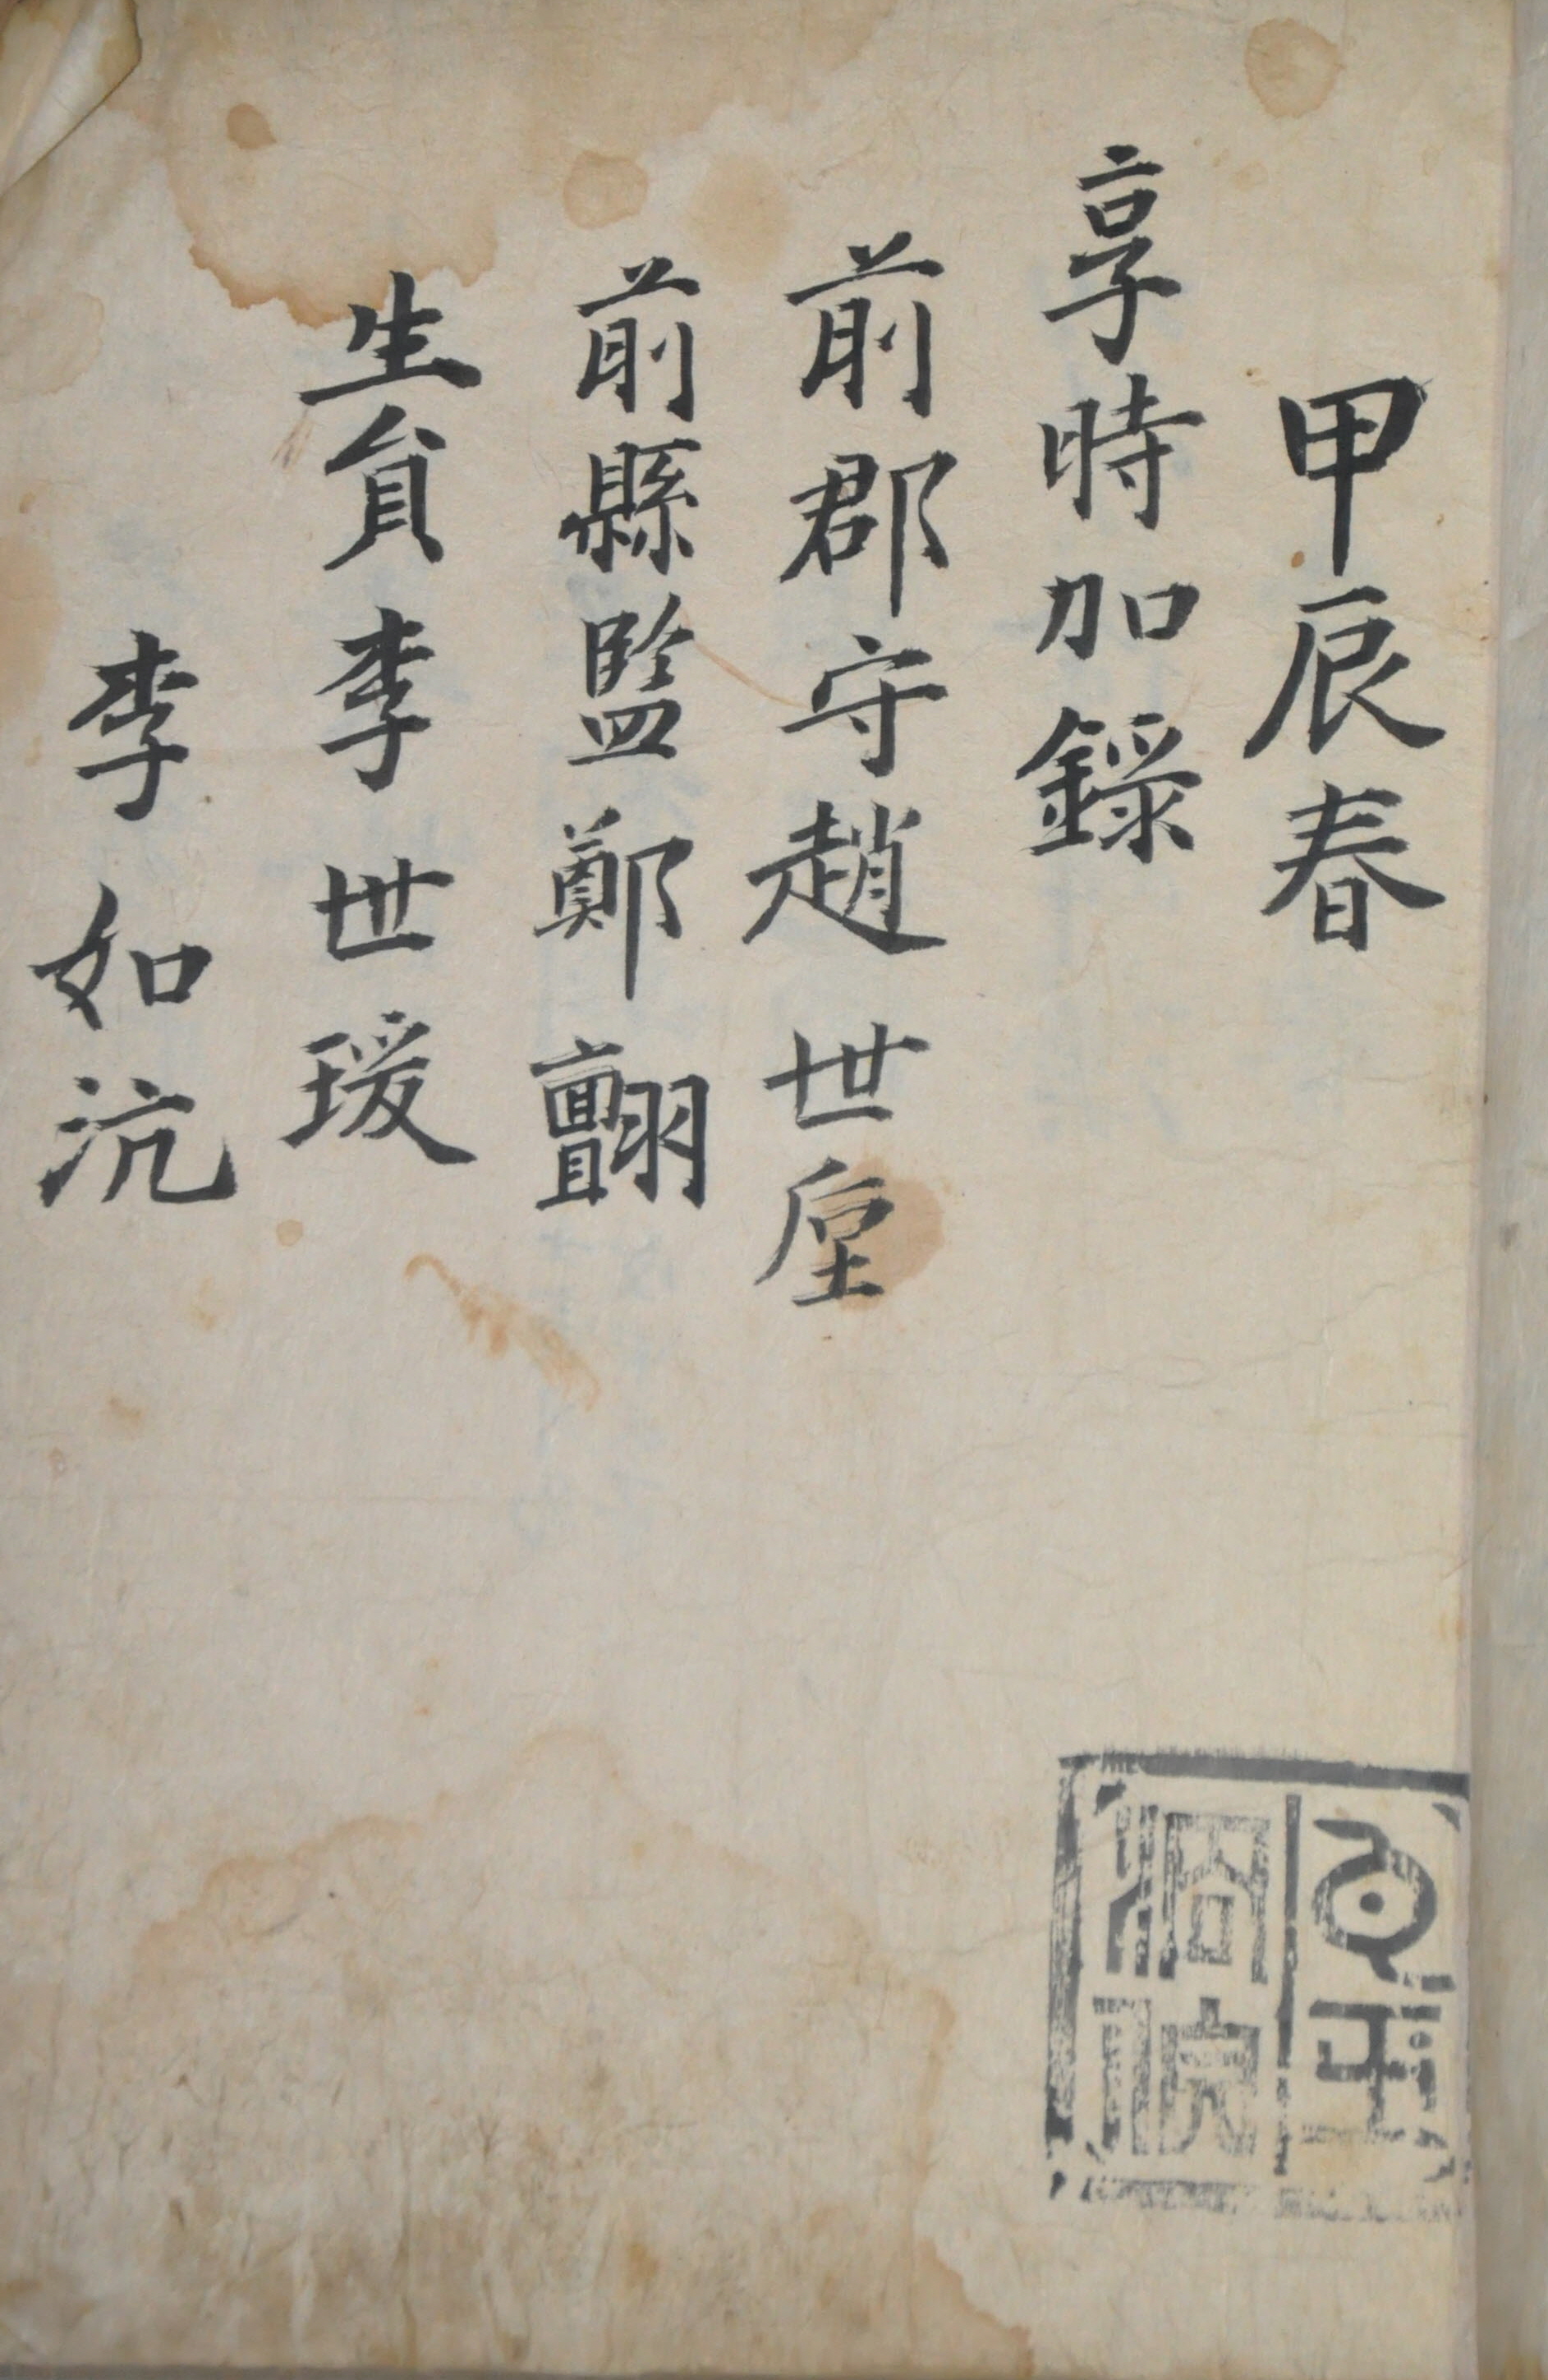 甲辰春
享時加錄
前郡守趙世垕
前縣監鄭
生員李世瑗
李如沆